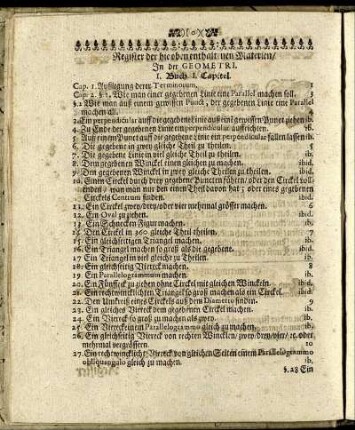 Register der hie oben enthaltenen Materien/
In der GEOMETRI.
I. Buch. I. Capitel.
Cap. 1. Außlegung deren Terminorum. 1
Cap. 2. §. 1. Wie man einer gegebenen Linie eine Parallel machen soll.
§. 2 Wie man auß einem gewissen Punct, der gegebenen Linie eine Parallel
machen soll.
3. Ein perpendicular auff die gegebene Linie auß ein gewissen Punct ziehen ib.
4. Zu Ende der gegebenen Linie ein perpendicular auffrichten. ib.
5. Auß einem Punct auff die gegebene Linie ein perpendicular fallen lassen ib.
6. Die gegebene in zwey gleiche Theil zu theilen. 5
7. Die gegebene Linie in viel gleiche Theil zu theilen. ib.
8. Dem gegebenen Winckel einen gleichen zu machen. ibid.
9. Den gegebenen Winckel in zwey gleiche Theil zu theilen. ibid.
10. Einen Circkel durch drey gegebene Puncten führen/ oder den Circkel voll-
enden/ wann man nur den einen Theil davon hat; oder eines gegebenen
Circkels Centrum finden. ibid.
11. Ein Circkel zwey/drey/oder vier mehrmal grösser machen. 6
12. Ein Oval zu ziehen. ib.
13. Ein Schnecken Figur machen. ib.
14. Den Circkel in 360. gleiche Theil theilen. 7
15. Ein gleichseitigen Triangel machen. ib.
16. Ein Triangel machen so groß als die gegebene. ib.
17. Ein Triangel in viel gleiche zu Theilen. ib.
18. Ein gleichseitig Viereck machen. 8
19. Ein Parallelogrammum machen. ib.
20. Ein Fünffeck zu ziehen ohne Circkel mit gleichen Winckeln. ibid.
21. Ein rechtwincklichten Triangel so groß machen als ein Circkel. ibid.
22. Den Umkreiß eines Circkels auß dem Diametro finden. 9
23. Ein gleiches Viereck dem gegebenen Circkel machen. ib.
24. Ein Viereck so groß zu machen als zwey. ib.
25. Ein Viereck einem Parallelogrammo gleich zu machen. ib.
26. Ein gleichseitig Viereck von rechten Winckeln/ zwey/drey/vier/ ꝛc. oder
mehrmal vergrössern. 10
27. Ein rechtwincklicht Viereck von gleichen Seiten einem Parallelogrammo
obliquangulo gleich zu machen. ib.
§. 28 Ein